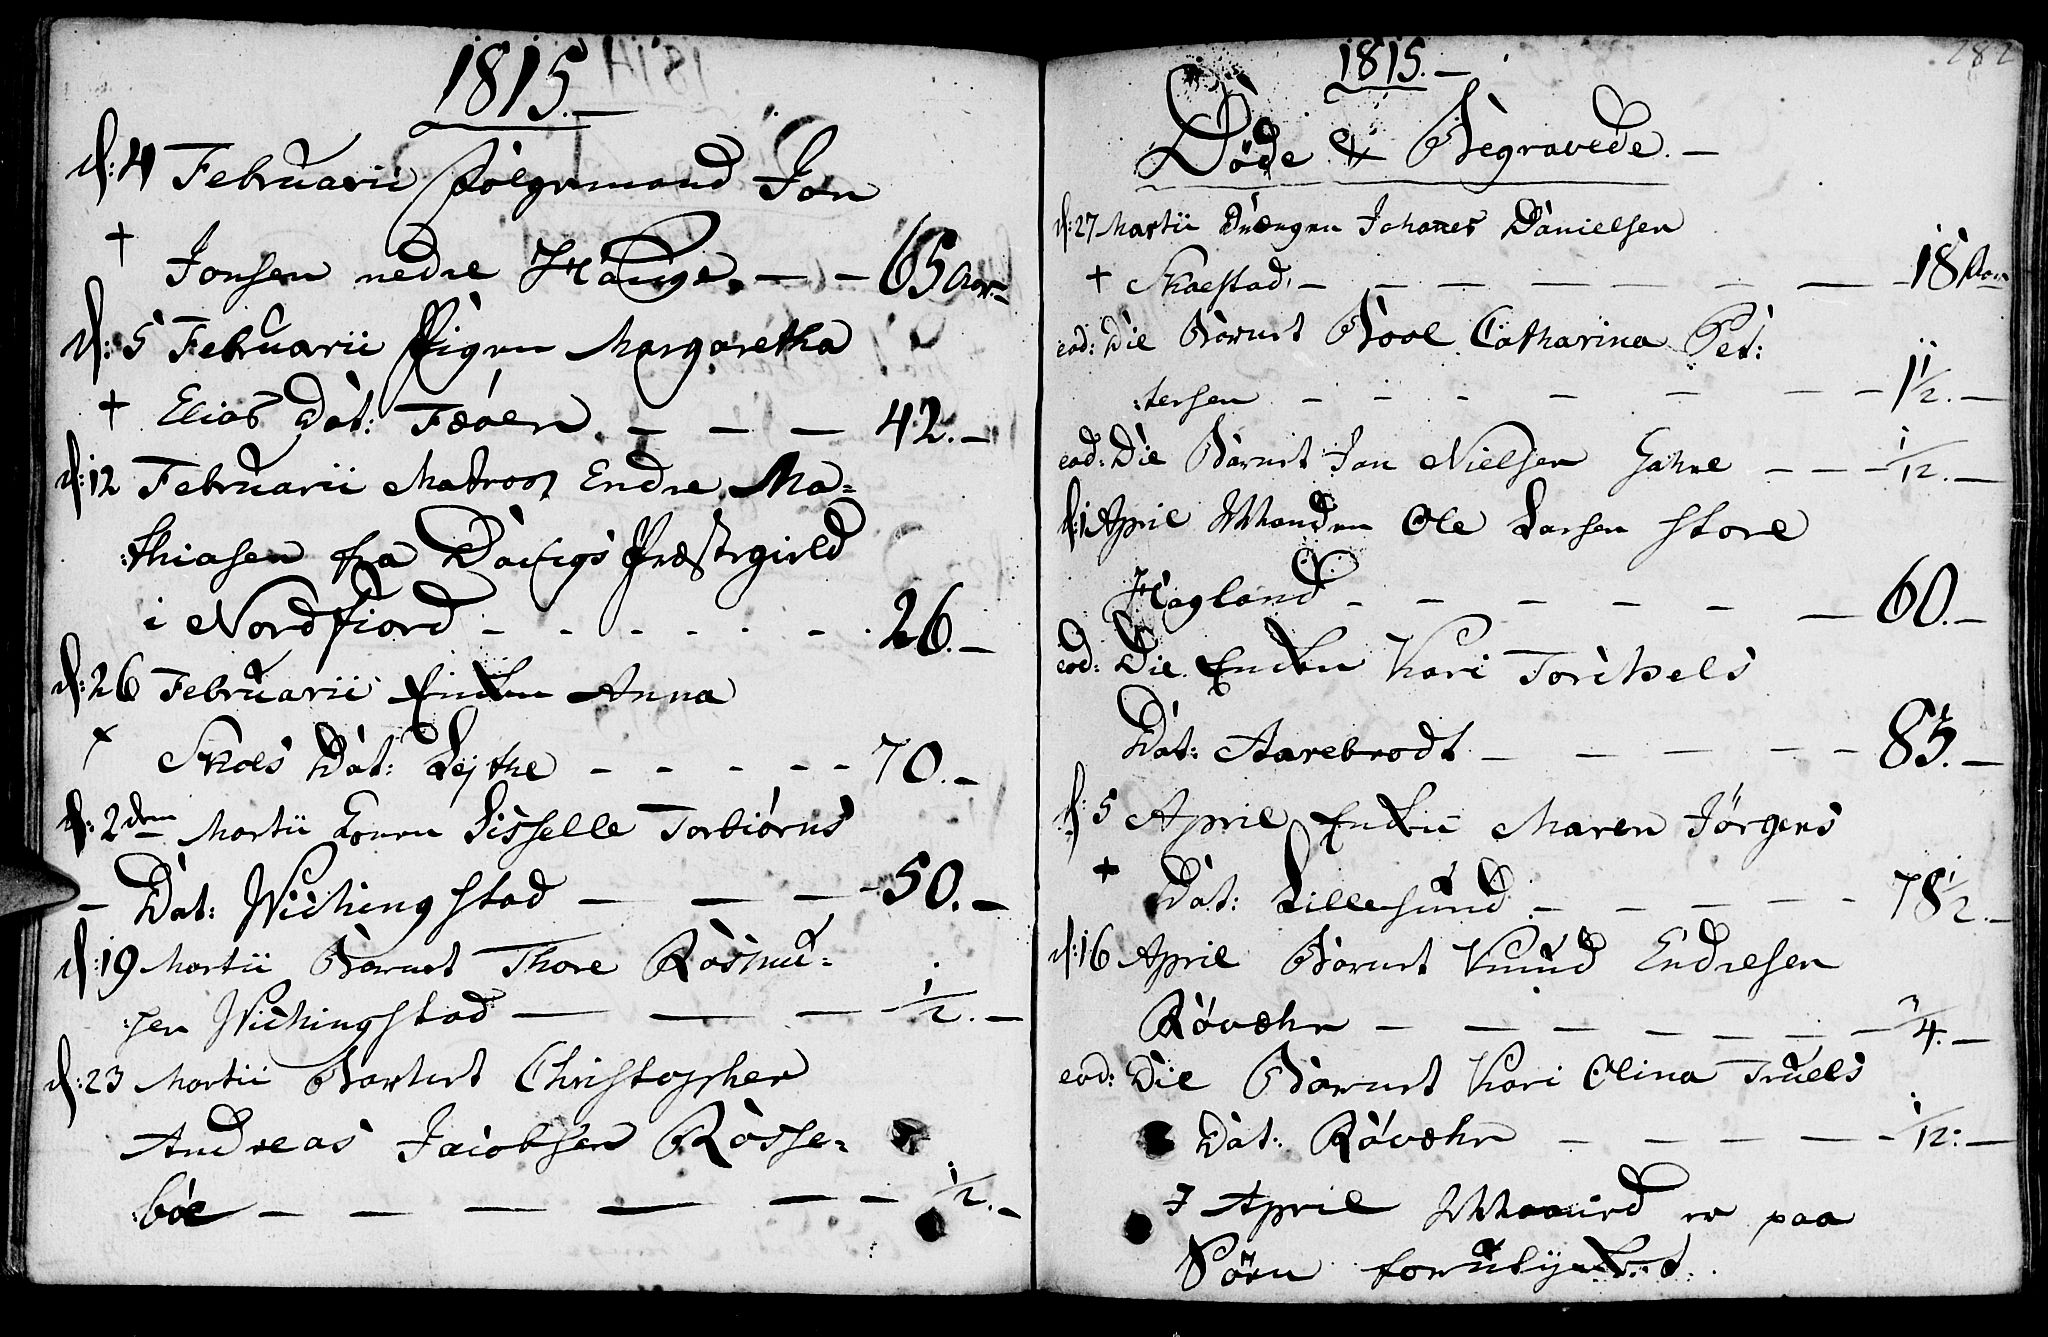 1815.
d: 4 Februarii Følgemand Jon
† Jonsen nedre Hauge. — — 65 Aar
d: 5 Februarii Pigen Margaretha
† Elias Dat: Fæøen — — — 42. —
d: 12 Februarii Matros Endre Ma=
:thiasen fra Præstegield
i Nordfiord - - - - - - 26. —
d: 26 Februarii Enken Anna
† Dat: Lejthe - - - - - 70. —
d: 2den Martii Konen Sisselle Torbiørns
— Dat: Wichingstad — — — 50. —
d: 19 Martii Barnet Thore Rasmu=
:sen Wichingstad — — — 1/2. —
d: 23 Martii Barnet Christopher
Andreas Jacobsen Røsse=
:bøe — — — — — — 1/2. —
1815. —
282
Døde & Begravede. —
d: 27 Martii Drængen Johanes Danielsen
† — — — — — — — 18 Aar
eod: Die Barnet Boel Catharina Pet:
:tersen - - - - - - - 1 1/2. —
eod: Die Barnet Jan Nielsen — — — 1/12. —
d: 1 April Manden Ole Larsen store
Hagland - - - - - — 60. —
eod: Die Enken Kari Torchels
Dat: Aarebrodt — — — — — 83. —
d: 5 April Enken Maren Jørgens
† Dat: Lillesund. — — — — — 78 1/2. —
d: 16 April Barnet Knud Endresen
Røvæhr — — — — — — — 3/4. —
eod: Die Barnet Kari Olina Truels
Dat: Røværhr — — — — - 1/12: —
7 April er paa
Søen forulyket.